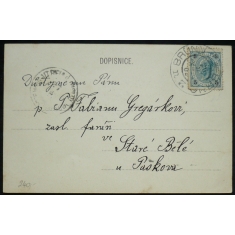 DOPISNICE.
Důstojnému Pánu
p. P. Fabianu Gregárkovi,
zasl. farář
ve
Staré Bělé
u Paskova